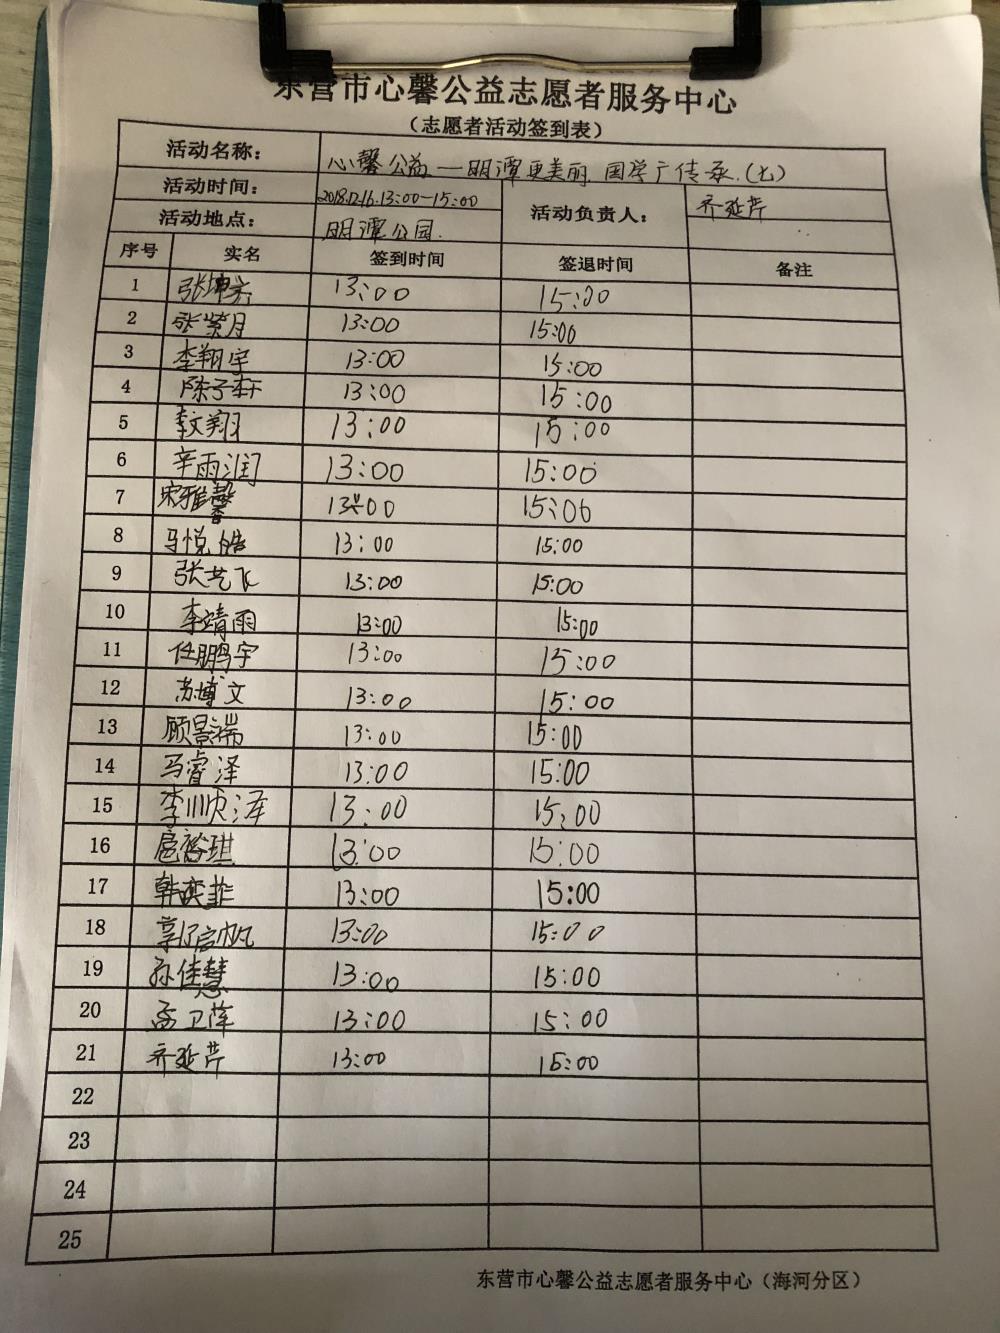 东营市心馨公益志愿者服务中心
（志愿者活动签到表）
活动名称： 心馨公益—明潭更美丽.国学广传承.(七)
活动时间： 2018.12.16.13:00-15:00 活动负责人： 齐延芹
活动地点： 明潭公园.
序号 实名 签到时间 签退时间 备注
1 张坤 13:00 15:00
2 张紫月 13:00 15:00
3 李翔宇 13:00 15:00
4 陈子轩 13:00 15:00
5 李文翔 13:00 15:00
6 辛雨润 13:00 15:00
7 宋雅馨 13:00 15:00
8 马悦皓 13:00 15:00
9 张艺飞 13:00 15:00
10 李靖雨 13:00 15:00
11 任鹏宇 13:00 15:00
12 苏博文 13:00 15:00
13 顾景端 13:00 15:00
14 马睿泽 13:00 15:00
15 李顺泽 13:00 15:00
16 扈裕琪 13:00 15:00
17 韩奕菲 13:00 15:00
18 郭启帆 13:00 15:00
19 孙佳慧 13:00 15:00
20 孟卫萍 13:00 15:00
21 齐延芹 13:00 15:00
22
23
24
25
东营市心馨公益志愿者服务中心（海河分区）